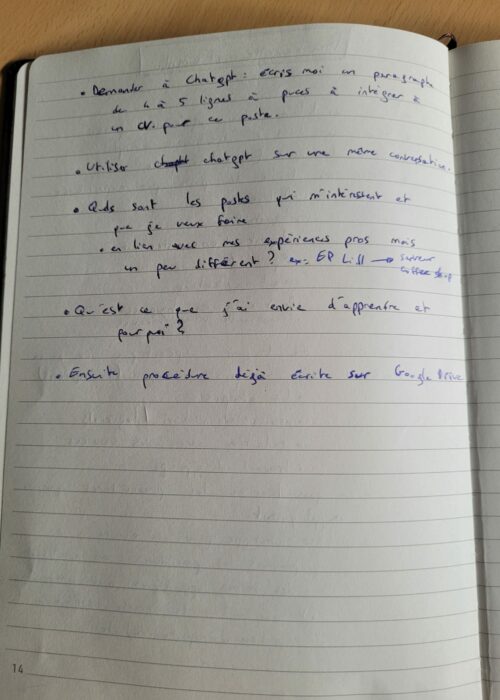 • Demander à Chatgpt : écris moi un paragraphe
de 4 à 5 lignes à puces à intégrer à
un CV pour ce poste.
• Utiliser chatgpt sur une même conversation.
• Quels sont les postes qui m'intéressent et
que je veux faire
• en lien avec mes expériences pros mais
un peu différent ? ex: EP Lidl → serveur
coffee shop
• Qu'est ce que j'ai envie d'apprendre et
pourquoi ?
• Ensuite procédure déjà écrite sur Google Drive
14